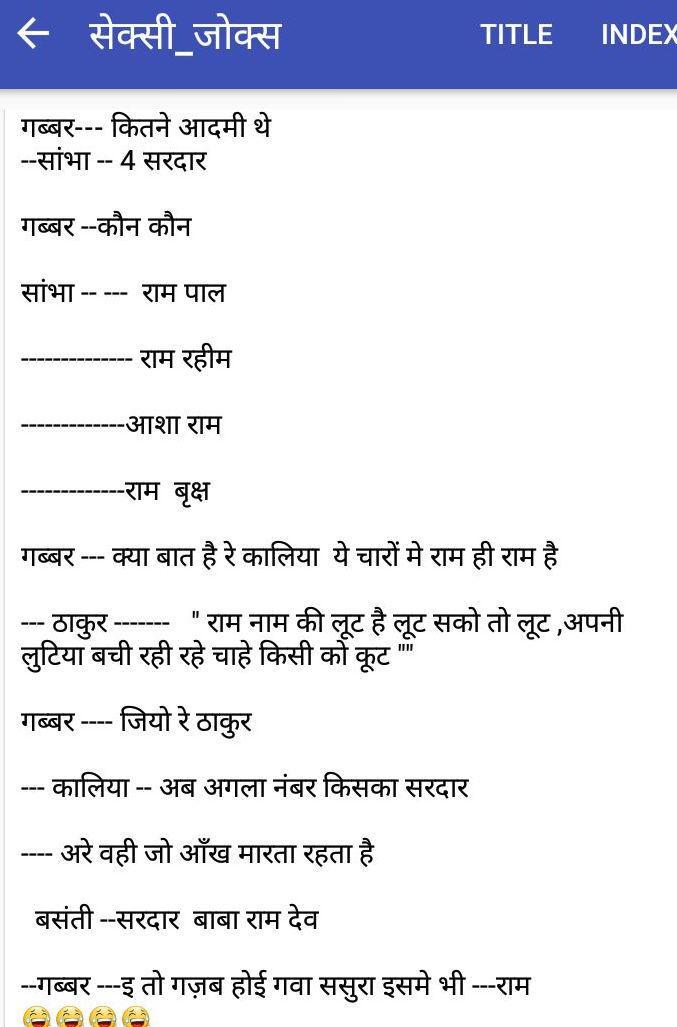 ← सेक्सी_जोक्स TITLE INDEX
गब्बर--- कितने आदमी थे
--सांभा -- 4 सरदार
गब्बर --कौन कौन
सांभा -- --- राम पाल
-------------- राम रहीम
-------------आशा राम
-------------राम बृक्ष
गब्बर --- क्या बात है रे कालिया ये चारों मे राम ही राम है
--- ठाकुर ------- " राम नाम की लूट है लूट सको तो लूट ,अपनी
लुटिया बची रही रहे चाहे किसी को कूट ""
गब्बर ---- जियो रे ठाकुर
--- कालिया -- अब अगला नंबर किसका सरदार
---- अरे वही जो आँख मारता रहता है
बसंती --सरदार बाबा राम देव
--गब्बर ---इ तो गज़ब होई गवा ससुरा इसमे भी ---राम
😂😂😂😂